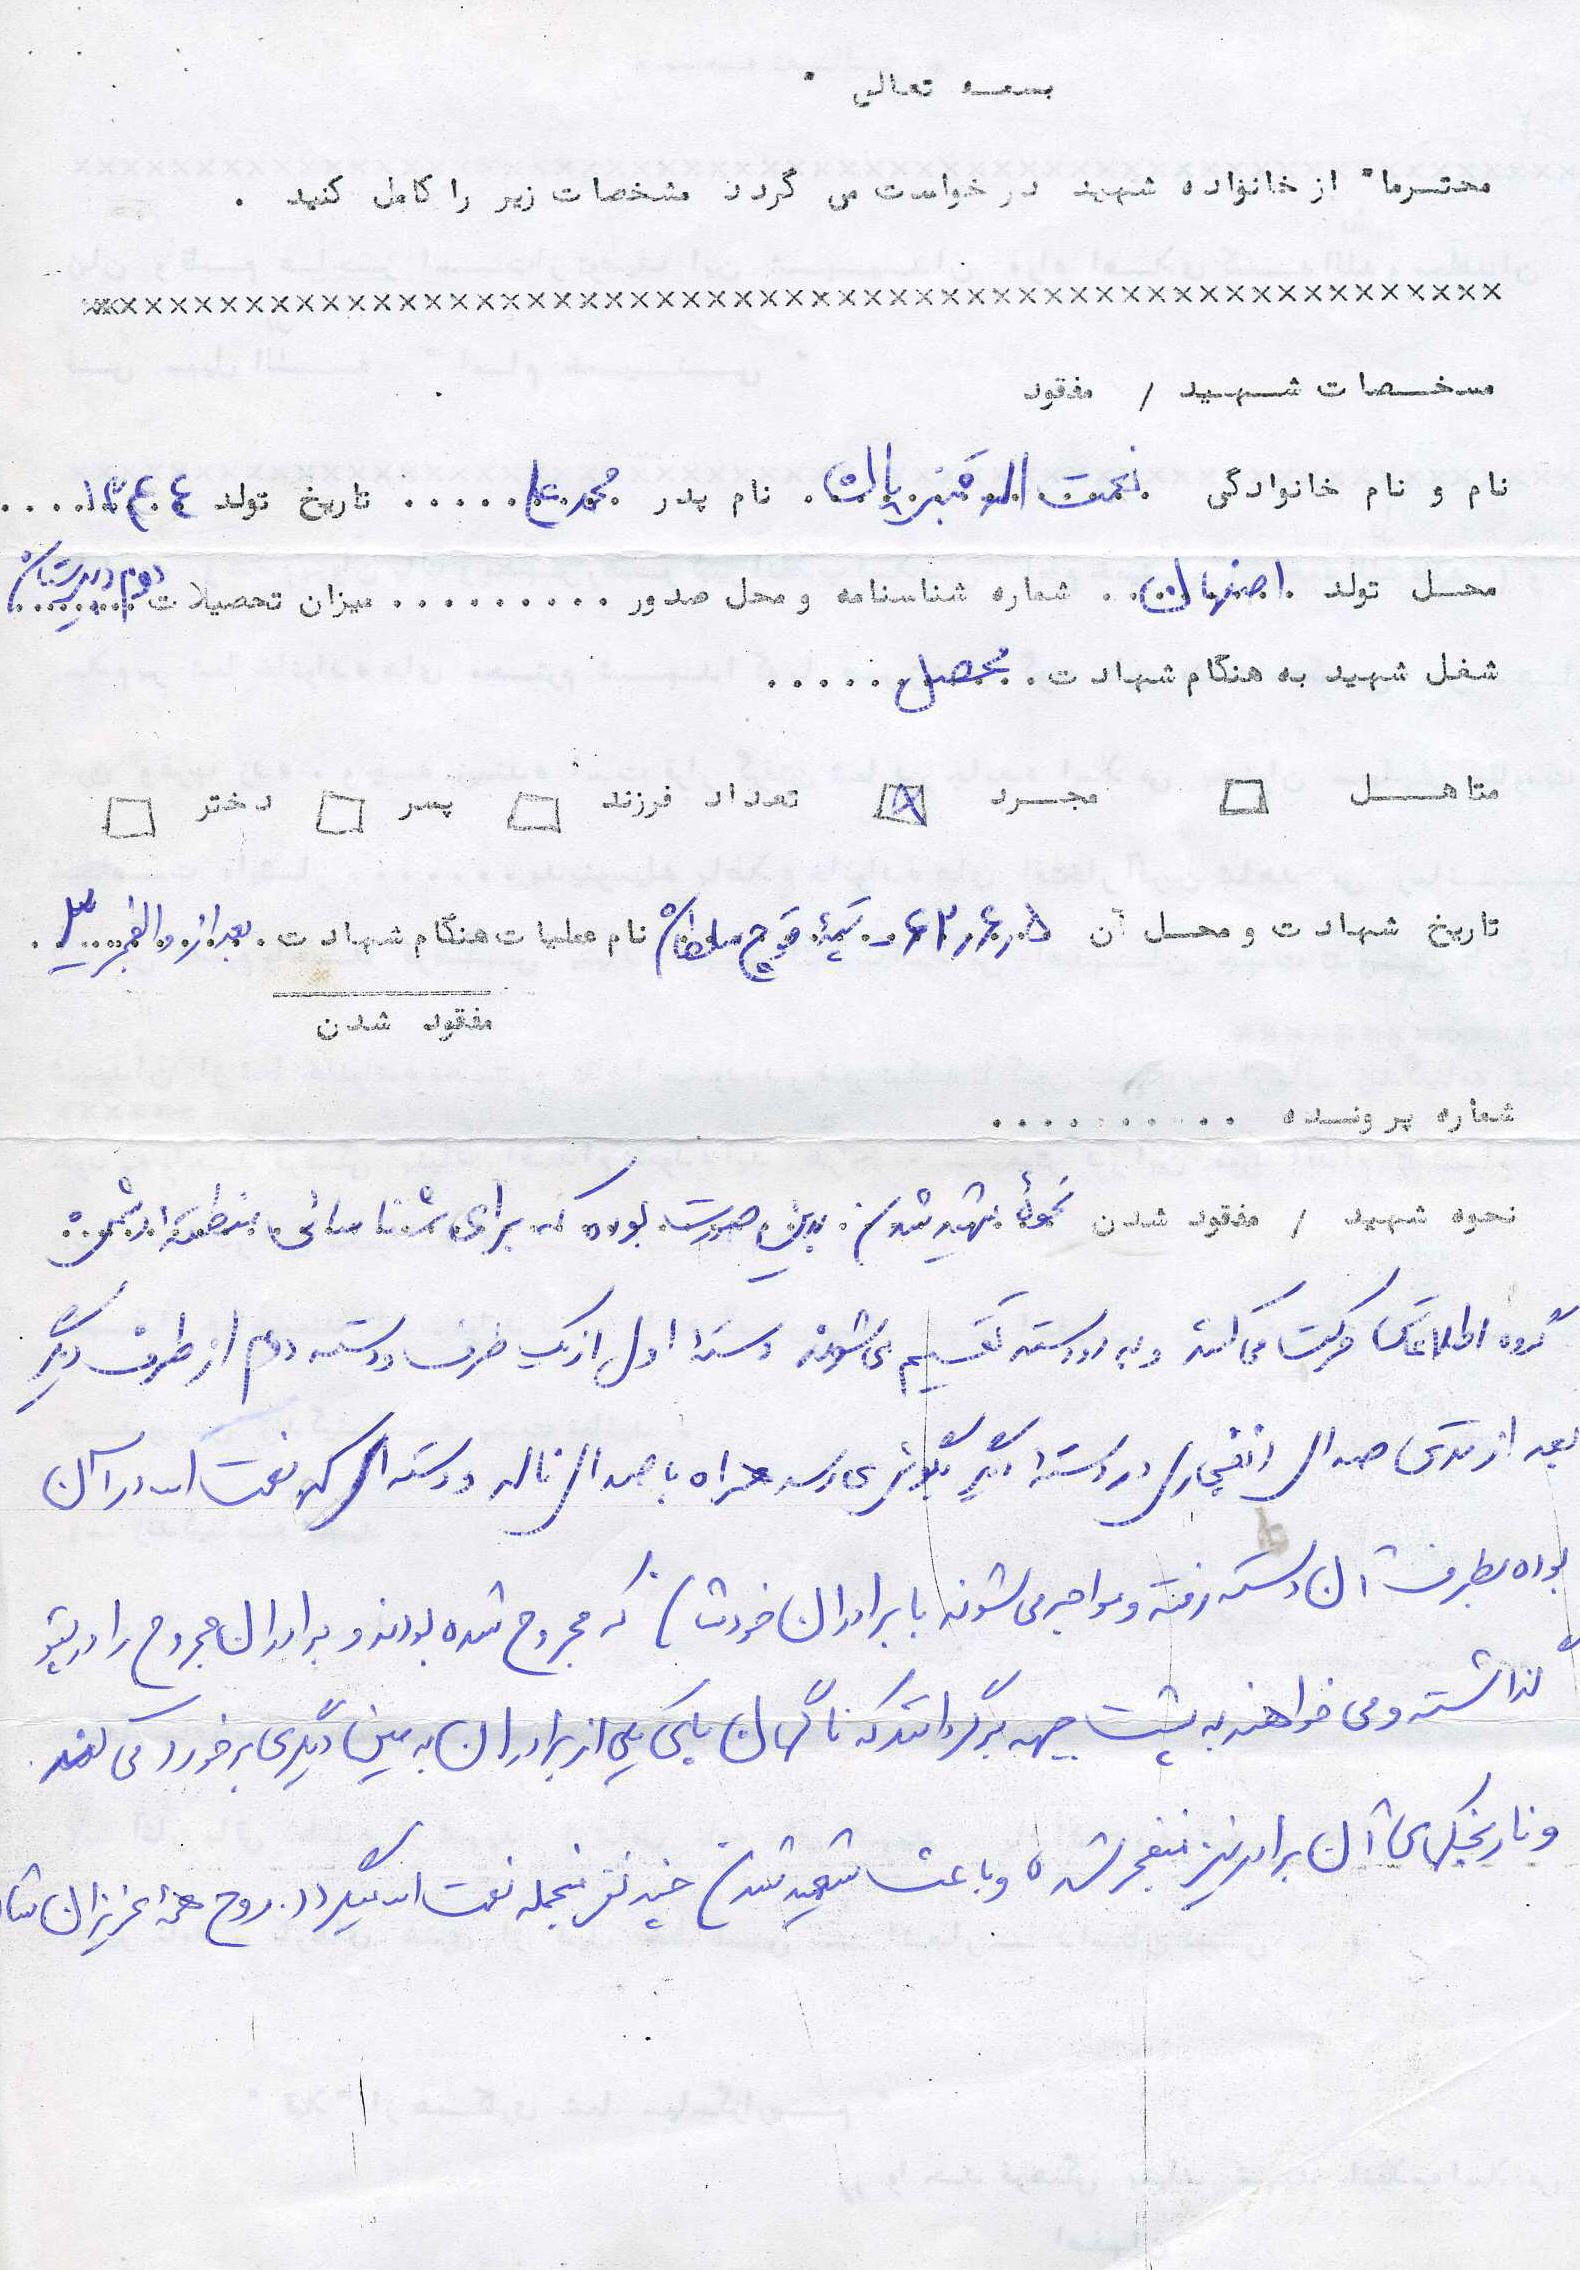 بسمه تعالی
محترما" از خانواده شهید درخواست می گردد مشخصات زیر را کامل کنید .
xxxxxxxxxxxxxxxxxxxxxxxxxxxxxxxxxxxxxxxxxxxxxxxxxxxxxxx
مسخصات شهید / مفقود
نام و نام خانوادگی نعمت اله قنبریان نام پدر محمد علی ..... تاریخ تولد ۱۳۴۴ ....
محل تولد اصفهان .. شماره شناسنامه و محل صدور ......... میزان تحصیلات دوم دبیرستان
شغل شهید به هنگام شهادت . محصل .....
متاهل □ مجرد ☒ تعداد فرزند □ پسر □ دختر □
تاریخ شهادت و محل آن ۶۳،۶،۵ - تپه قوچ سلطان نام عملیات هنگام شهادت . بعد از والفجر ۴ .
مفقود شدن
شماره پرونده ..........
نحوه شهید / مفقود شدن نحوۀ شهید شدن بدین صورت بوده که برای شناسائی منطقه ارتش
گروه اطلاعات حرکت می کنند و به دو دسته تقسیم می شوند دستۀ اول از یک طرف و دسته دوم از طرف دیگر
بعد از مدتی صدای انفجاری در دستۀ دیگر بگوش می رسد همراه با صدای ناله و دسته ای که نعمت اله در آن
بوده بطرف آن دسته رفته و مواجه می شوند با برادران خودشان که مجروح شده بودند و برادران مجروح را در پتو
گذاشته و می خواهند به پشت جبهه برگردانند که ناگهان پای یکی از برادران به مین دیگری برخورد می کند.
و نارنجکهای آن برادر نیز منفجر شده و باعث شهید شدن چند نفر منجمله نعمت اله میگردد. روح همۀ عزیزان شاد